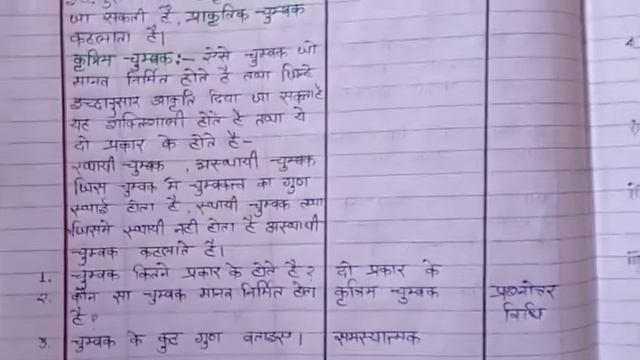 जा सकती है, प्राकृतिक चुम्बक
कहलाता है।
कृत्रिम चुम्बक:- ऐसे चुम्बक जो
मानव निर्मित होते है तथा जिन्हे
इच्छानुसार आकृति दिया जा सकता है
यह शक्तिशाली होते है तथा ये
दो प्रकार के होते है-
स्थायी चुम्बक , अस्थायी चुम्बक
जिस चुम्बक मे चुम्बकत्व का गुण
स्थाई होता है, स्थायी चुम्बक तथा
जिसमे स्थायी नही होता है अस्थायी
चुम्बक कहलाते है।
1. चुम्बक कितने प्रकार के होते है? दो प्रकार के
२. कौन सा चुम्बक मानव निर्मित होता कृत्रिम चुम्बक प्रश्नोत्तर
है? विधि
3. चुम्बक के कुछ गुण बताइए। समस्यात्मक